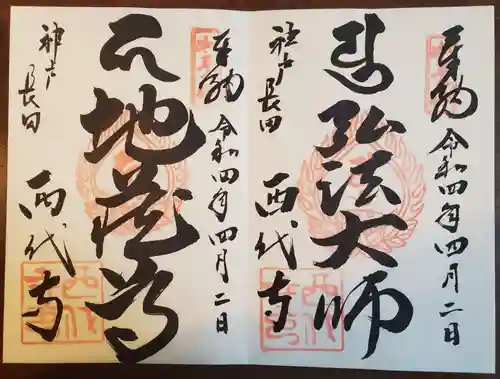 奉納
令和四年四月二日
弘法大師
神戸
長田
西代寺
奉納
令和四年四月二日
地蔵尊
神戸
長田
西代寺